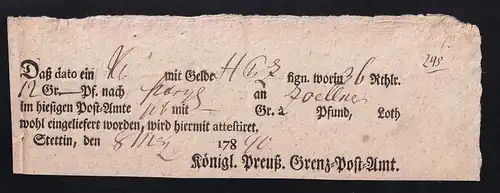 245
Daß dato ein mit Gelde H sign. worin 36 Rthlr.
12 Gr.— Pf. nach an Zoellner
im hiesigen Post-Amte mit — Gr. 2 Pfund, Loth
wohl eingeliefert worden, wird hiermit attestiret.
Stettin, den 8 May 1790
Königl. Preuß. Grenz-Post-Amt.